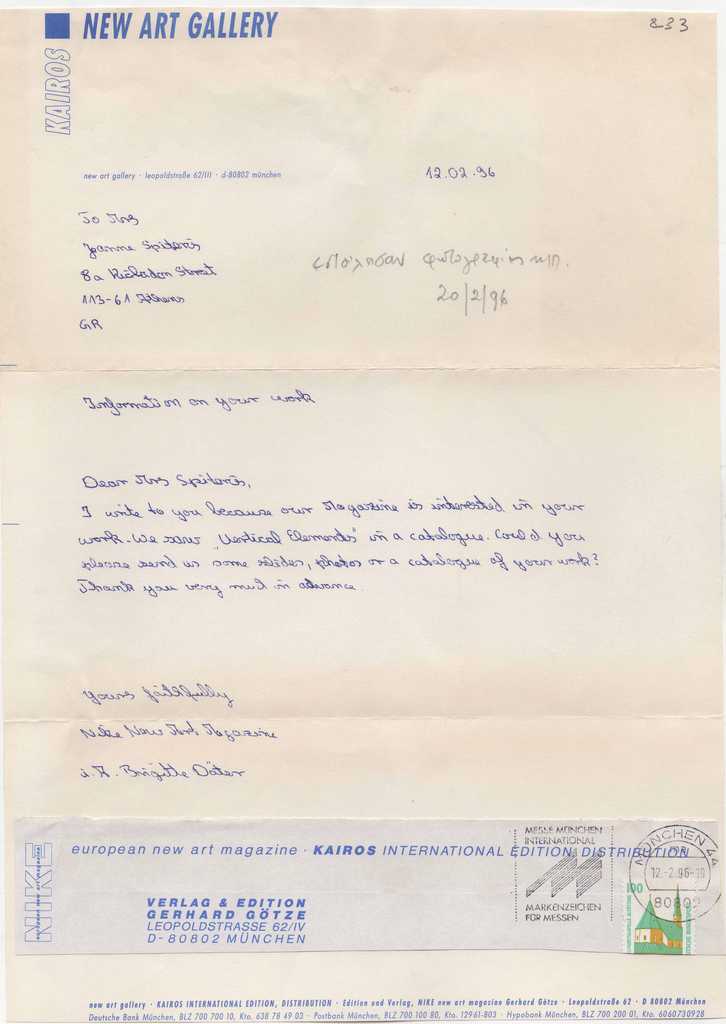 NEW ART GALLERY
833
KAIROS
new art gallery · leopoldstraße 62/III · d-80802 münchen
12.02.96
To Mrs
Joanne Spiteris
8a Street
113-61 Athens
GR
20/2/96
Information on your work
Dear Mrs Spiteris,
I write to you because our Magazine is interested in your
work. We saw "Vertical Elements" in a catalogue. Could you
please send us some slides, photos or a catalogue of your work?
Thank you very much in advance.
Yours faithfully
Nike New Art Magazine
i.A. Brigitte
NIKE
european new art magazine
european new art magazine · KAIROS INTERNATIONAL EDITION, DISTRIBUTION
VERLAG & EDITION
GERHARD GÖTZE
LEOPOLDSTRASSE 62/IV
D-80802 MÜNCHEN
MESSE MÜNCHEN
INTERNATIONAL
MARKENZEICHEN
FÜR MESSEN
MÜNCHEN 44
12.-2.96
80802
100
new art gallery · KAIROS INTERNATIONAL EDITION, DISTRIBUTION · Edition und Verlag, NIKE new art magazine Gerhard Götze · Leopoldstraße 62 · D 80802 München
Deutsche Bank München, BLZ 700 700 10, Kto. 638 78 49 03 · Postbank München, BLZ 700 100 80, Kto. 12961-803 · Hypobank München, BLZ 700 200 01, Kto. 6060730928